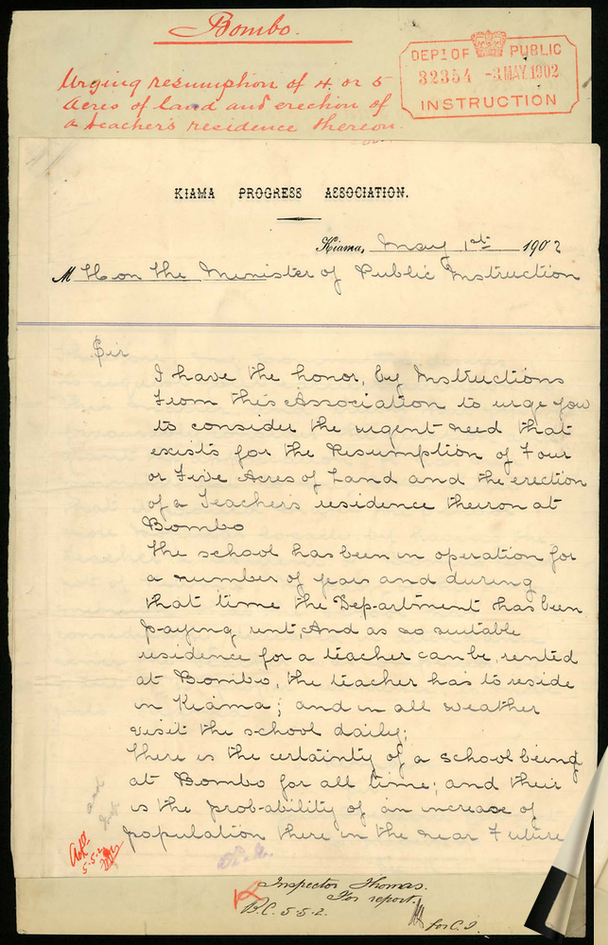 Bombo.
Urging resumption of 4 or 5
acres of land and erection of
a teacher's residence thereon.
DEPT OF PUBLIC
32354 -3.MAY.1902
INSTRUCTION
KIAMA PROGRESS ASSOCIATION.
Kiama, May 1st 1902
M Hon the Minister of Public Instruction
Sir
I have the honor, by Instructions
From this Association to urge you
to consider the urgent need that
exists for the Resumption of Four
or Five Acres of Land and the erection
of a Teachers residence theiron at
Bombo
The school has been in operation for
a number of years and during
that time the Dep-artment has been
paying rent, And as so suitable
residence for a teacher can be, rented
at Bombo, the teacher has to reside
in Kiama; and in all weather
visit the school daily;
there is the certainty of a school being
at Bombo for all time; and their
is the prob-ability of an increase of
population there in the near Future
Ackd
5.5.2
Inspector Thomas.
For report.
B.C. 5.5.2.
for C.I.